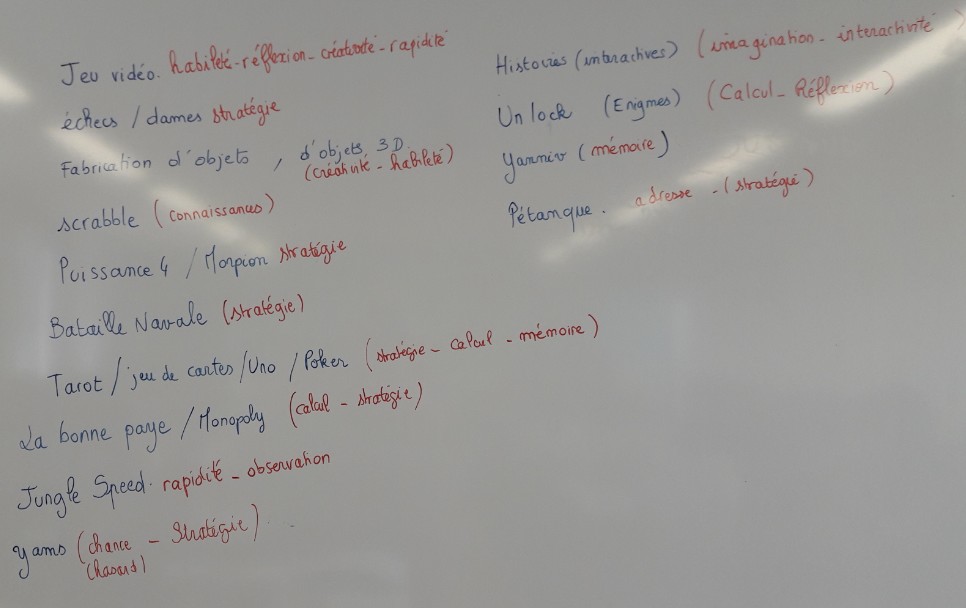 Jeu vidéo. habileté - réflexion - créativité - rapidité
échecs / dames stratégie
Fabrication d'objets, d'objets 3D
(créativité - habileté)
scrabble (connaissances)
Puissance 4 / Morpion stratégie
Bataille Navale (stratégie)
Tarot / jeu de cartes / Uno / Poker (stratégie - calcul - mémoire)
La bonne paye / Monopoly (calcul - stratégie)
Jungle Speed. rapidité - observation
yams (chance - Stratégie)
(hasard)
Histoires (interactives) (imagination - interactivité)
Unlock (Enigmes) (Calcul - Réflexion)
Yanniv (mémoire)
Pétanque. adresse - (stratégie)